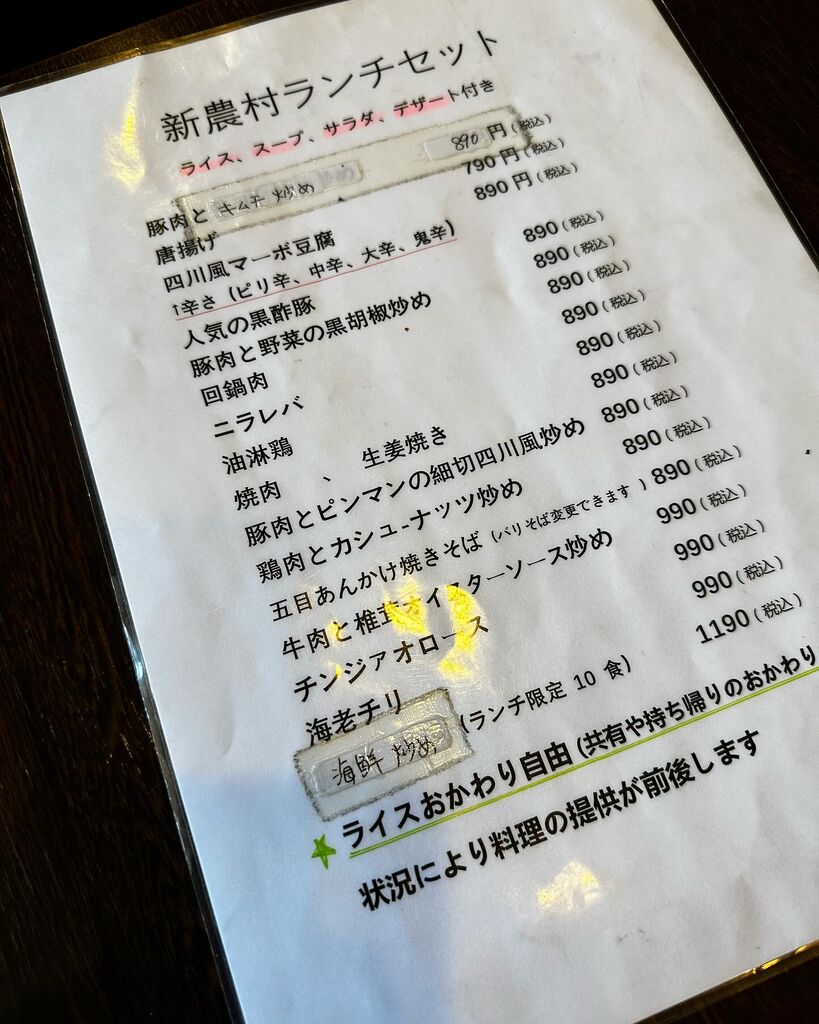 新農村ランチセット
ライス、スープ、サラダ、デザート付き
豚肉と キムチ 炒め 890 円(税込)
唐揚げ 790 円(税込)
四川風マーボ豆腐 890 円(税込)
↑辛さ (ピリ辛、中辛、大辛、鬼辛)
人気の黒酢豚 890(税込)
豚肉と野菜の黒胡椒炒め 890(税込)
回鍋肉 890(税込)
ニラレバ 890(税込)
油淋鶏 890(税込)
焼肉 、 生姜焼き 890(税込)
豚肉とピンマンの細切四川風炒め 890(税込)
鶏肉とカシュ-ナッツ炒め 890(税込)
五目あんかけ焼きそば (バリそば変更できます ) 890(税込)
牛肉と椎茸オイスターソース炒め 990(税込)
チンジァオロース 990(税込)
海老チリ 990(税込)
海鮮 炒め (ランチ限定 10 食) 1190(税込)
ライスおかわり自由 (共有や持ち帰りのおかわり
状況により料理の提供が前後します